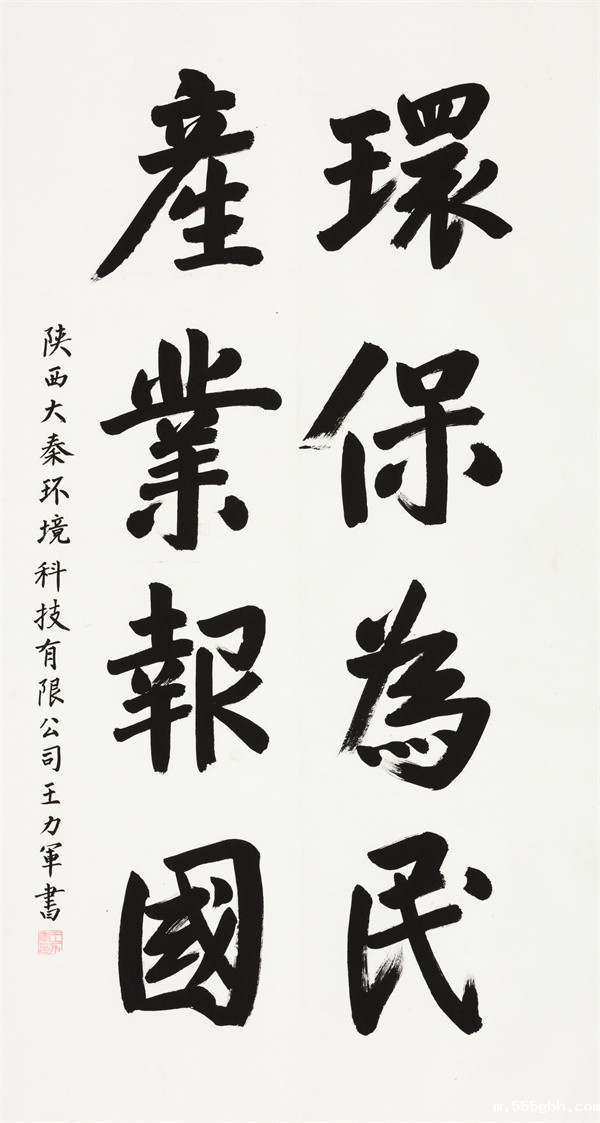 環保為民
產業報國
陕西大秦环境科技有限公司王力军書
m.555gbh.com